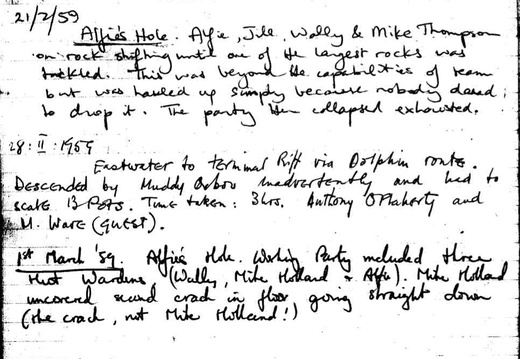 21/2/59
Alfie's Hole. Alfie, Jill, Wally & Mike Thompson
on rock shifting until one of the largest rocks was
tackled. This was beyond the capabilities of team
but was hauled up simply because nobody dared
to drop it. The party then collapsed exhausted.
28:II:1959
Eastwater to Terminal Rift via Dolphin route.
Descended by Muddy Oxbow inadvertently and had to
scale 13 Pots. Time taken: 3 hrs. Anthony O'Flaherty and
M. Ware (guest).
1st March '59. Alfie's Hole. Working Party included three
Hut Wardens (Wally, Mike Holland + Alfie). Mike Holland
uncovered second crack in floor, going straight down
(the crack, not Mike Holland!)